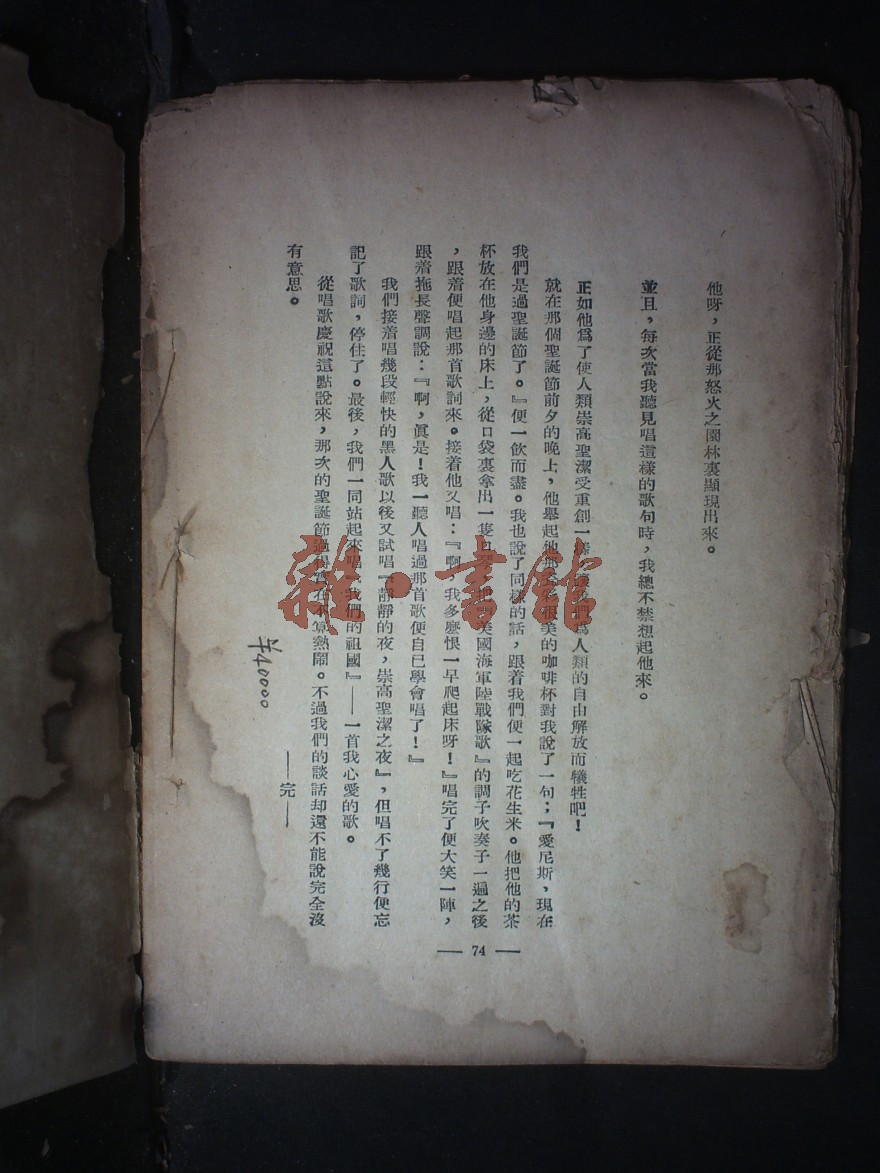 他呀，正從那怒火之園林裏顯現出來。
並且，每次當我聽見唱這樣的歌句時，我總不禁想起他來。
正如他爲了使人類崇高聖潔受重創一樣，讓我們爲人類的自由解放而犧牲吧！
就在那個聖誕節前夕的晚上，他舉起他那很美的咖啡杯對我說了一句；『愛尼斯，現在
我們是過聖誕節了。』便一飲而盡。我也說了同樣的話，跟着我們便一起吃花生米。他把他的茶
杯放在他身邊的床上，從口袋裏拿出一隻口琴，把『美國海軍陸戰隊歌』的調子吹奏了一遍之後
，跟着便唱起那首歌詞來。接着他又唱：『啊，我多麽恨一早爬起床呀！』唱完了便大笑一陣，
跟着拖長聲調說：『啊，眞是！我一聽人唱過那首歌便自己學會唱了！』
我們接着唱幾段輕快的黑人歌以後又試唱『靜靜的夜，崇高聖潔之夜』，但唱不了幾行便忘
記了歌詞，停住了。最後，我們一同站起來唱『我們的祖國』——一首我心愛的歌。
從唱歌慶祝這點說來，那次的聖誕節過得實在不算熱鬧。不過我們的談話却還不能說完全沒
有意思。
——完——
— 74 —
¥40000
雜·書館